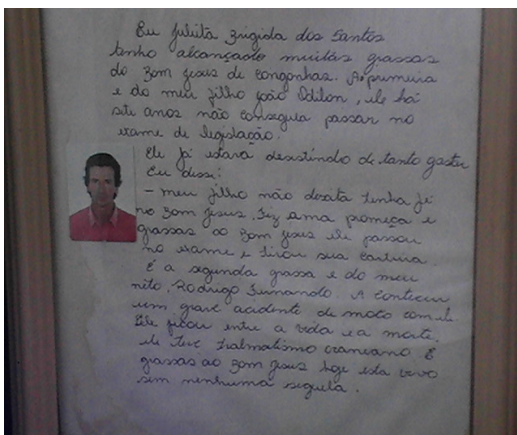 Eu Julita Brigida dos Santos
tenho alcançado muitas grassas
do Bom Jesus de Congonhas. A primeira
e do meu filho João Odilon, ele há
sete anos não conseguia passar no
exame de legislação.
Ele já estava desistindo de tanto gastar
Eu disse:
- meu filho não desista tenha fé
no Bom Jesus. Fiz uma promeça e
grassas ao Bom Jesus ele passou
no exame e tirou sua carteira.
E a segunda grassa e do meu
neto, Rodrigo Fernando. A conteceu
um grave acidente de moto com ele.
Ele ficou entre a vida e a morte.
ele teve tralmatismo craneano. E
grassas ao Bom Jesus hoje esta vivo
sem nenhuma sequela.